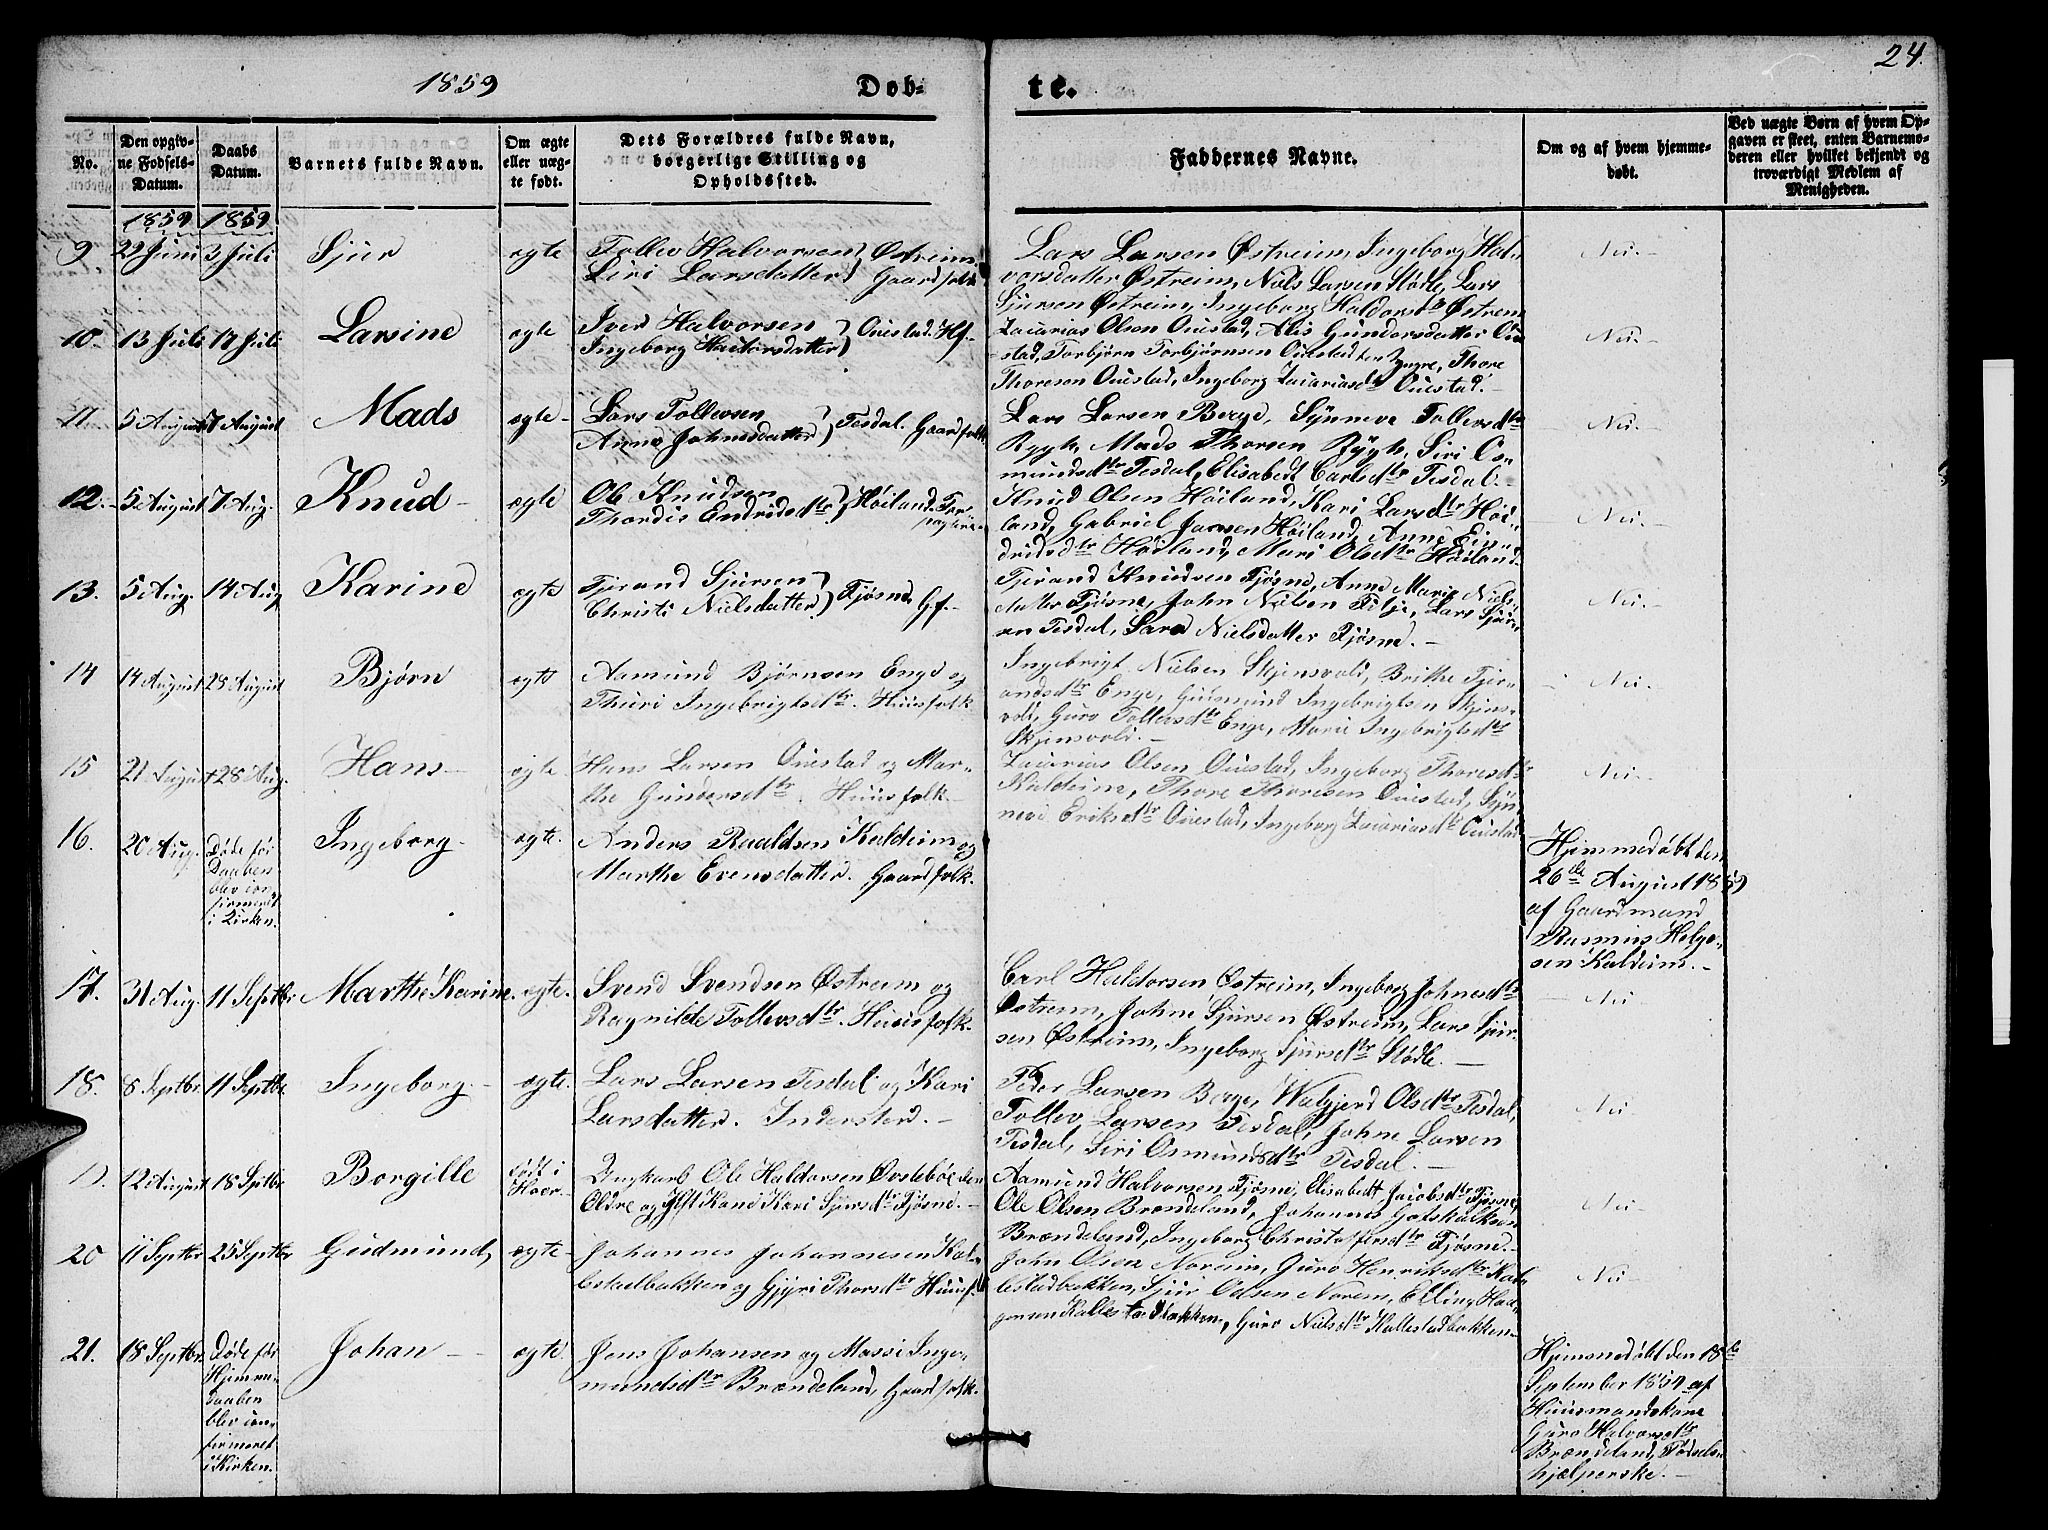 24.
1859
Døb-
te.
No.
Den opgiv-
ne Fødsels-
Datum.
Daabs
Datum.
Barnets fulde Navn.
Om ægte
eller uæg-
te født.
Dets Forældres fulde Navn,
borgerlige Stilling og
Opholdssted.
Faddernes Navne.
Om og af hvem hjemme-
døbt.
Ved uægte Børn af hvem Op-
gaven er skeet, enten Barnemo-
deren eller hvilket bekjendt og
troværdigt Medlem af
Menigheden.
1859 1859
9 29 Juni 3 Juli Sjur ægte
Tollev Halvorsen
Siri Larsdatter
Østreim
Gaardfolk
Lars Larsen Østreim, Ingeborg Hal-
vorsdatter Østreim, Niels Larsen Stødle, Lars
Sjursen Østreim, Ingeborg Haldorsdr Østreim
Nei.-
10. 13 Juli 17 Juli Larsine ægte
Iver Halvorsen
Ingeborg Haldorsdatter
Ouestad. Hf.
Zacarias Olsen Ouestad, Alis Gundersdatter Oue-
stad, Torbjørn Torbjørnsen Ouestad den Yngre, Thore
Thoresen Ouestad, Ingeborg Zacariasdtr Ouestad.
Nei.-
11 5 August 7 August Mads ægte-
Lars Tollevsen
Anne Johnesdatter
Tesdal. Gaardfolk
Lars Larsen Berge, Synneva Tollevsdtr
Rygh, Mads Thorsen Rygh, Siri Os-
mundsdtr Tesdal, Elisabedt Carlsdtr Tesdal.-
Nei.-
12. 5 August 7 Aug. Knud- ægte
Ole Knudsen
Thordis Endridsdtr
Høiland.
Knud Olsen Høiland, Kari Larsdtr Høi-
land, Gabriel Jansen Høiland, Anne Ein-
dridsdtr Høiland, Mari Olsdtr Høiland.
Nei.-
13. 5 Aug. 14 Aug Karine ægte
Tjerand Sjursen
Christi Nielsdatter
Fjøsne Gf.-
Tjerand Knudsen Fjøsne, Anne Marie Niels-
datter Fjøsne, John Nielsen Tilje, Lars Sjurs-
en Tesdal, Sara Nielsdatter Fjøsne.-
Nei.-
14 14 August 28 August Bjørn ægte
Aamund Bjørnsen Enge og
Thuri Ingebrigtsdtr. Huusfolk
Ingebrigt Nielsen Skjensvold, Brithe Tjer-
andsdtr Enge, Gudmund Ingebrigtsen Skjens-
vold, Guro Tollevsdtr Enge, Marie Ingebrigtsdtr
Skjensvold.-
Nei.-
15 21 August 28 Aug. Hans- ægte
Hans Larsen Ouestad og Mar-
the Gundersdtr. Huusfolk.-
Zacarias Olsen Ouestad, Ingeborg Thoresdtr
Kaldeim, Thore Thoresen Ouestad, Syn-
neve Eriksdtr Ouestad, Ingeborg Zacariasdtr Ouestad
Nei.-
16. 20 Aug. Ingeborg- ægte.
Døde før
Daaben
blev con-
firmeret
i Kirken.
Anders Roaldsen Kaldeim og
Marthe Evensdatter. Gaardfolk.
Hjemmedøbt den
26de August 1859
af Gaardmand
Rasmus Helge-
sen Kaldeim.-
17. 31 Aug. 11 Septbr Marthe Karine. ægte.
Svend Svendsen Østreim og
Ragnilde Tollevsdtr. Huusfolk.
Carl Haldorsen Østreim, Ingeborg Johnesdtr
Østreim, Johne Sjursen Østreim, Lars Sjur-
sen Østreim, Ingeborg Sjursdtr Stødle.-
Nei
18. 8 Septbr. 11 Septbr Ingeborg.- ægte.
Lars Larsen Tesdal og Kari
Larsdatter. Indersted.-
Peder Larsen Berge, Walgjerd Olsdtr Tesdal,
Tollev Larsen Tesdal, Johne Larsen
Tesdal, Siri Osmundsdtr Tesdal.-
Nei
12 August 18 Septbr Borgille født i
Hoer-
Ungkarl Ole Haldorsen Øvstebøe den
Ældre og Gift Kone Kari Sjursdtr Fjøsne.-
Aamund Halvorsen Fjøsne, Elisabedt Jacobsdtr Fjøsne,
Ole Olsen Brændeland, Johannes Gotskalksen
Brændeland, Ingeborg Christoffersdtr Fjøsne.-
Nei
20 11 Septbr 25 Septbr Gudmund, ægte-
Johannes Johannesen Kal-
lestadbakken og Gjyri Thorsdtr Huusf.
John Olsen Noreim, Guro Henriksdtr Kal-
lestadbakken, Sjur Olsen Noreim, Elling Haa-
gensen Kallestadbakken, Guro Nielsdtr Kallestadbakken-
Nei
21. 18 Septbr. Johan- ægte.
Døde før
Hjemme
daaben
blev con-
firmeret
i Kirken.
Jens Johansen og Massi Inge-
mundsdtr Brændeland, Gaardfolk.
Hjemmedøbt den 18de
September 1859 af
Huusmandskone
Guro Halvorsdtr
Brændeland, Fødsels-
hjælperske.-